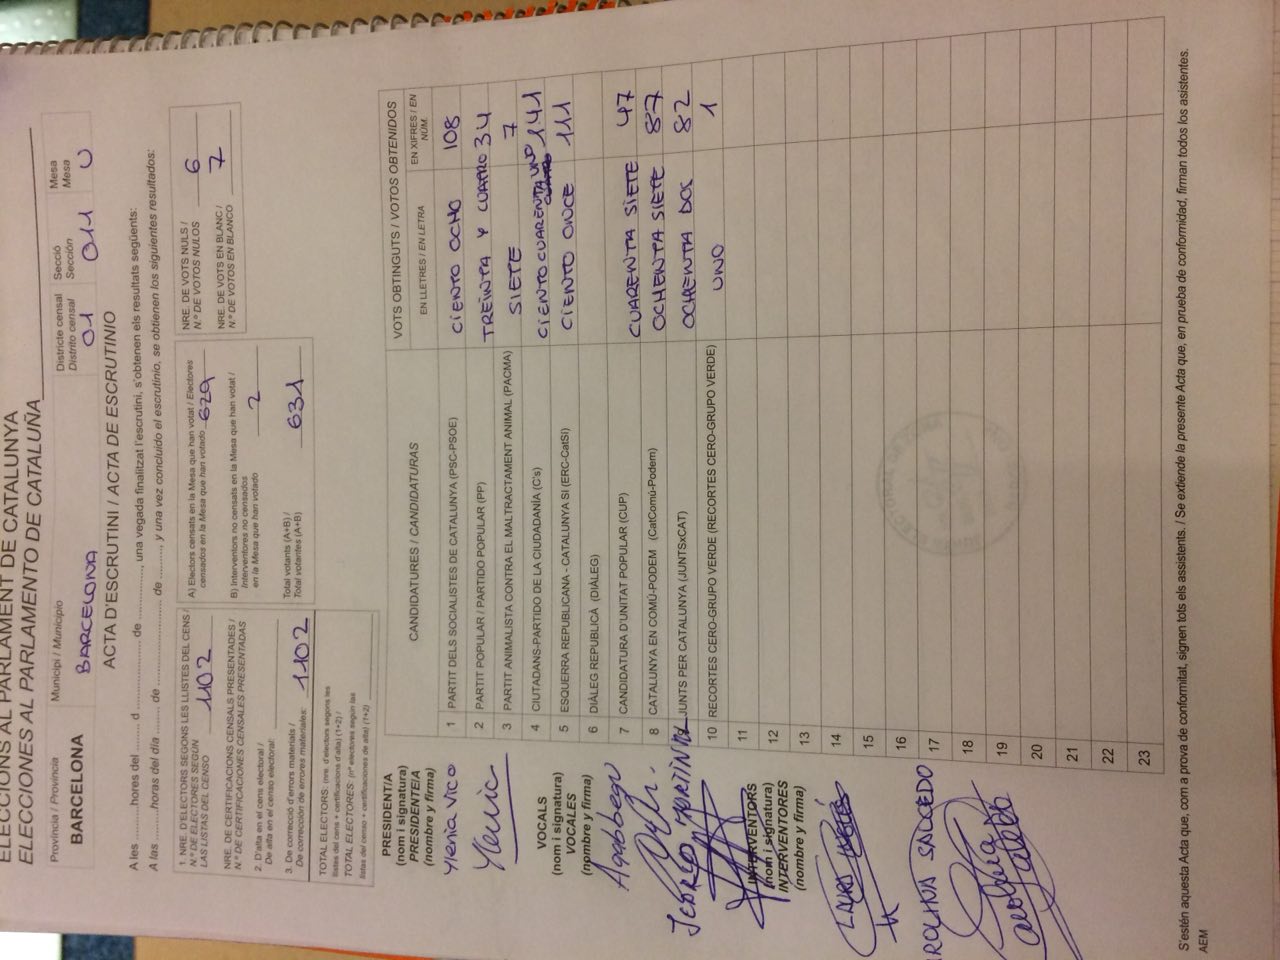 ELECCIONS AL PARLAMENT DE CATALUNYA
ELECCIONES AL PARLAMENTO DE CATALUÑA
Província / Provincia
BARCELONA
Municipi / Municipio
BARCELONA
Districte censal
Distrito censal
01
Secció
Sección
011
Mesa
Mesa
U
ACTA D'ESCRUTINI / ACTA DE ESCRUTINIO
A les ........hores del ........ d ........ de ........, una vegada finalitzat l'escrutini, s'obtenen els resultats següents:
A las ........horas del día ........ de ........ de ........, y una vez concluido el escrutinio, se obtienen los siguientes resultados:
1. NRE. D'ELECTORS SEGONS LES LLISTES DEL CENS /
N.º DE ELECTORES SEGÚN
LAS LISTAS DEL CENSO
1102
NRE. DE CERTIFICACIONS CENSALS PRESENTADES /
N.º DE CERTIFICACIONES CENSALES PRESENTADAS
2. D'alta en el cens electoral /
De alta en el censo electoral:
3. De correcció d'errors materials /
De corrección de errores materiales:
1102
TOTAL ELECTORS: (nre. d'electors segons les
llistes del cens + certificacions d'alta) (1+2) /
TOTAL ELECTORES: (nº electores según las
listas del censo + certificaciones de alta) (1+2)
A) Electors censats en la Mesa que han votat / Electores
censados en la Mesa que han votado 629
B) Interventors no censats en la Mesa que han votat /
Interventores no censados
en la Mesa que han votado
2
Total votants (A+B) /
Total votantes (A+B)
631
NRE. DE VOTS NULS /
N.º DE VOTOS NULOS
6
NRE. DE VOTS EN BLANC /
N.º DE VOTOS EN BLANCO
7
CANDIDATURES / CANDIDATURAS
VOTS OBTINGUTS / VOTOS OBTENIDOS
EN LLETRES / EN LETRA
EN XIFRES / EN NÚM.
1 PARTIT DELS SOCIALISTES DE CATALUNYA (PSC-PSOE) CIENTO OCHO 108
2 PARTIT POPULAR / PARTIDO POPULAR (PP) TREINTA Y CUATRO 34
3 PARTIT ANIMALISTA CONTRA EL MALTRACTAMENT ANIMAL (PACMA) SIETE 7
4 CIUTADANS-PARTIDO DE LA CIUDADANÍA (C's) CIENTO CUARENTA UNO 141
5 ESQUERRA REPUBLICANA - CATALUNYA SÍ (ERC-CatSÍ) CIENTO ONCE 111
6 DIÀLEG REPUBLICÀ (DIÀLEG)
7 CANDIDATURA D'UNITAT POPULAR (CUP) CUARENTA SIETE 47
8 CATALUNYA EN COMÚ-PODEM (CatComú-Podem) OCHENTA SIETE 87
JUNTS PER CATALUNYA (JUNTSxCAT) OCHENTA DOS 82
10 RECORTES CERO-GRUPO VERDE (RECORTES CERO-GRUPO VERDE) UNO 1
11
12
13
14
15
16
17
18
19
20
21
22
23
PRESIDENT/A
(nom i signatura)
PRESIDENTE/A
(nombre y firma)
Ylenia Vico
VOCALS
(nom i signatura)
VOCALES
(nombre y firma)
INTERVENTORS
(nom i signatura)
INTERVENTORES
(nombre y firma)
S'estén aquesta Acta que, com a prova de conformitat, signen tots els assistents. / Se extiende la presente Acta que, en prueba de conformidad, firman todos los asistentes.
AEM